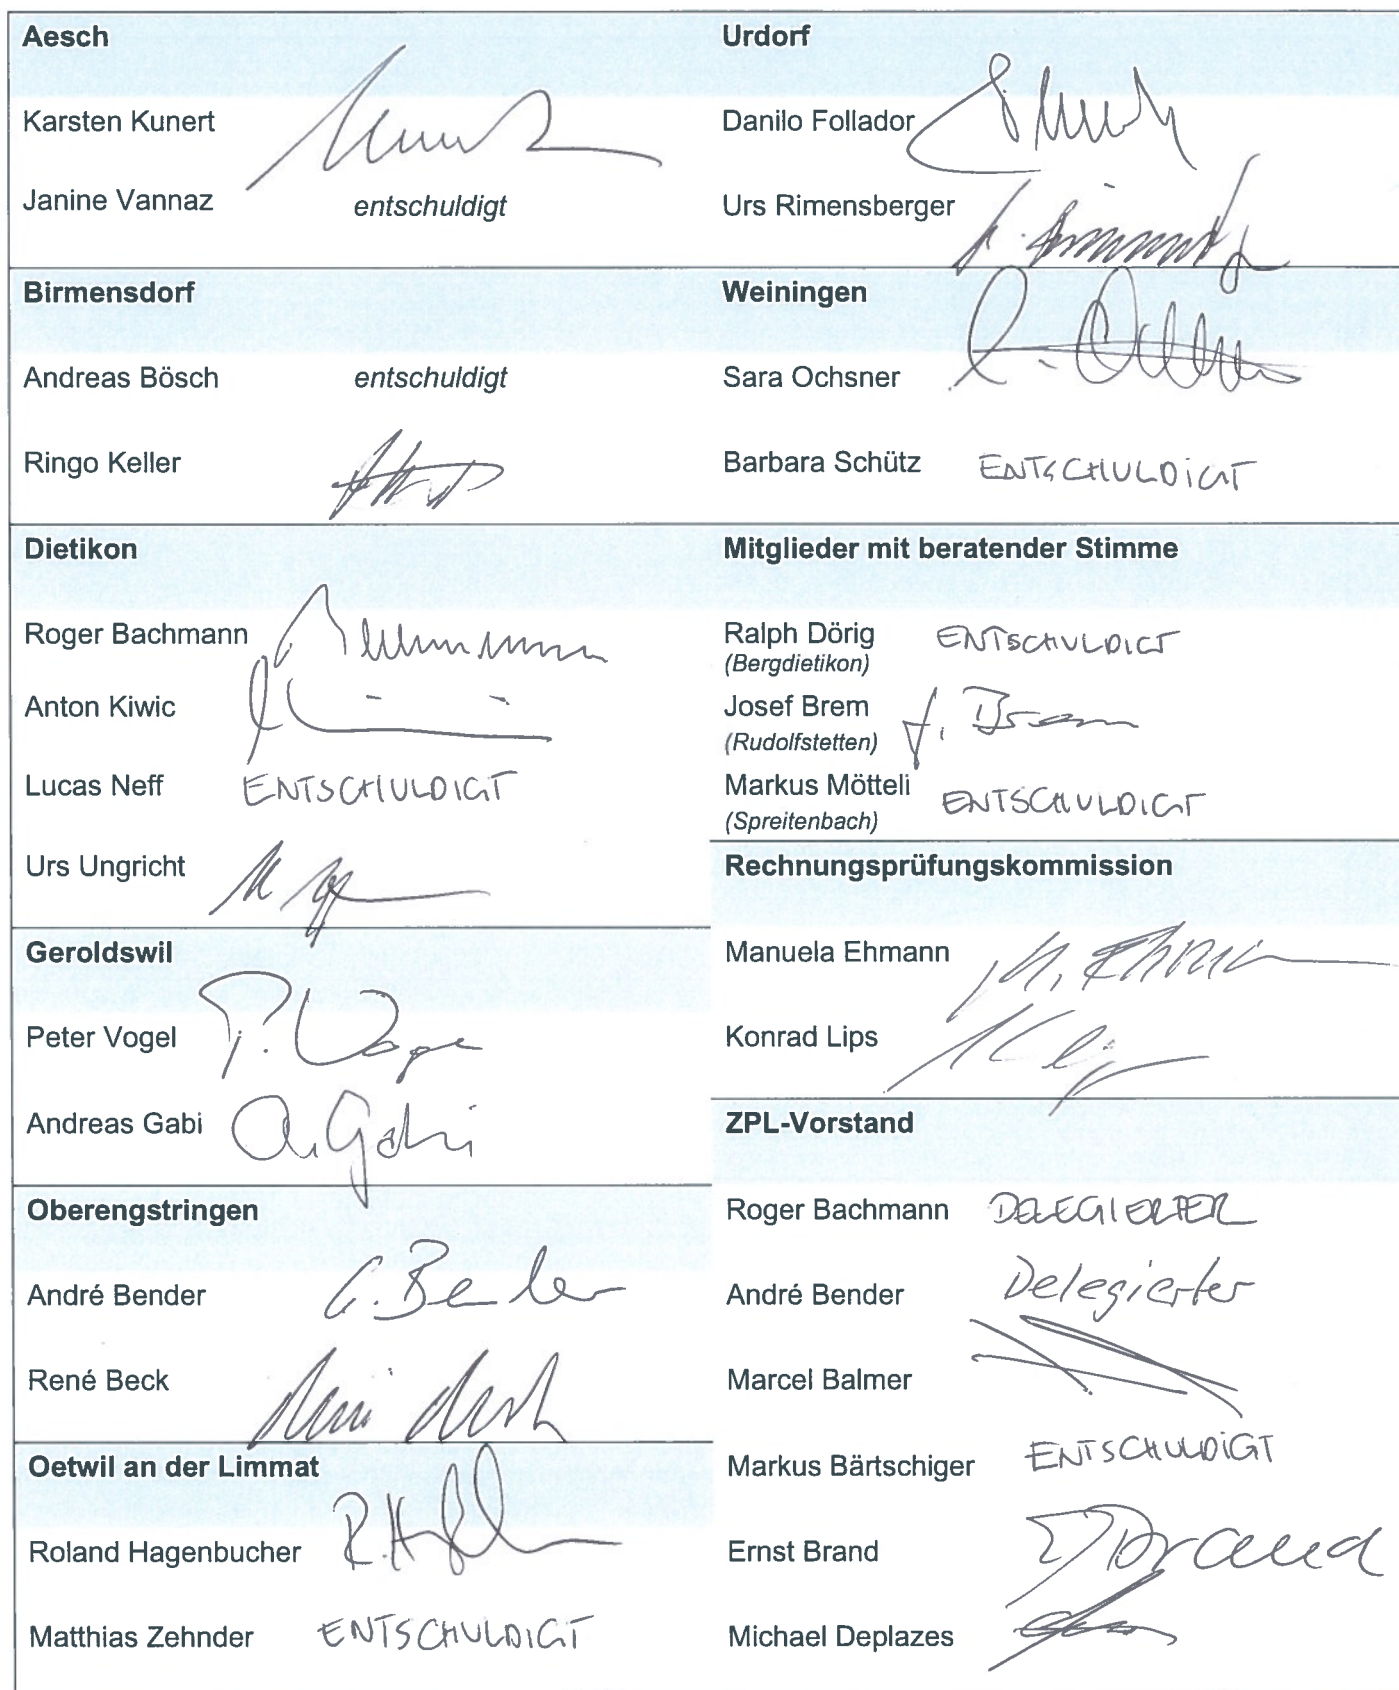 Aesch
Karsten Kunert
Janine Vannaz entschuldigt
Birmensdorf
Andreas Bösch entschuldigt
Ringo Keller
Dietikon
Roger Bachmann
Anton Kiwic
Lucas Neff ENTSCHULDIGT
Urs Ungricht
Geroldswil
Peter Vogel
Andreas Gabi A. Gabi
Oberengstringen
André Bender A. Bender
René Beck
Oetwil an der Limmat
Roland Hagenbucher
Matthias Zehnder ENTSCHULDIGT
Urdorf
Danilo Follador
Urs Rimensberger
Weiningen
Sara Ochsner
Barbara Schütz ENTSCHULDIGT
Mitglieder mit beratender Stimme
Ralph Dörig ENTSCHULDIGT
(Bergdietikon)
Josef Brem J. Brem
(Rudolfstetten)
Markus Mötteli ENTSCHULDIGT
(Spreitenbach)
Rechnungsprüfungskommission
Manuela Ehmann
Konrad Lips
ZPL-Vorstand
Roger Bachmann DELEGIERTER
André Bender Delegierter
Marcel Balmer
Markus Bärtschiger ENTSCHULDIGT
Ernst Brand E Brand
Michael Deplazes